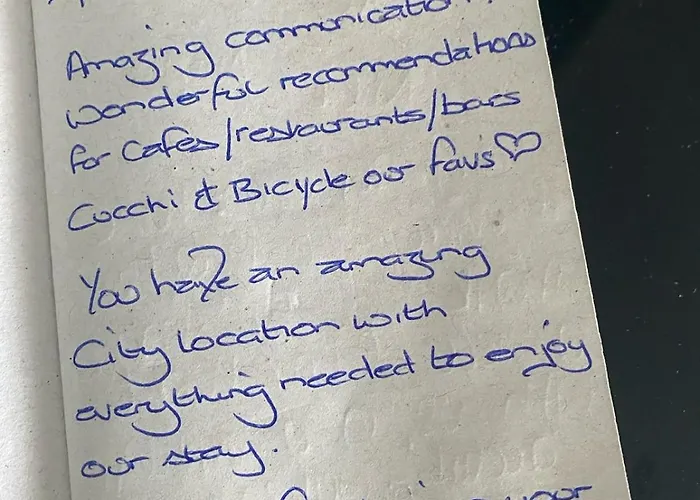 Amazing communication!
wonderful recommendations
for Cafes/restaurants/bars
Cucchi & Bicycle our fav's♡
You have an amazing
City location with
everything needed to enjoy
our stay.
your